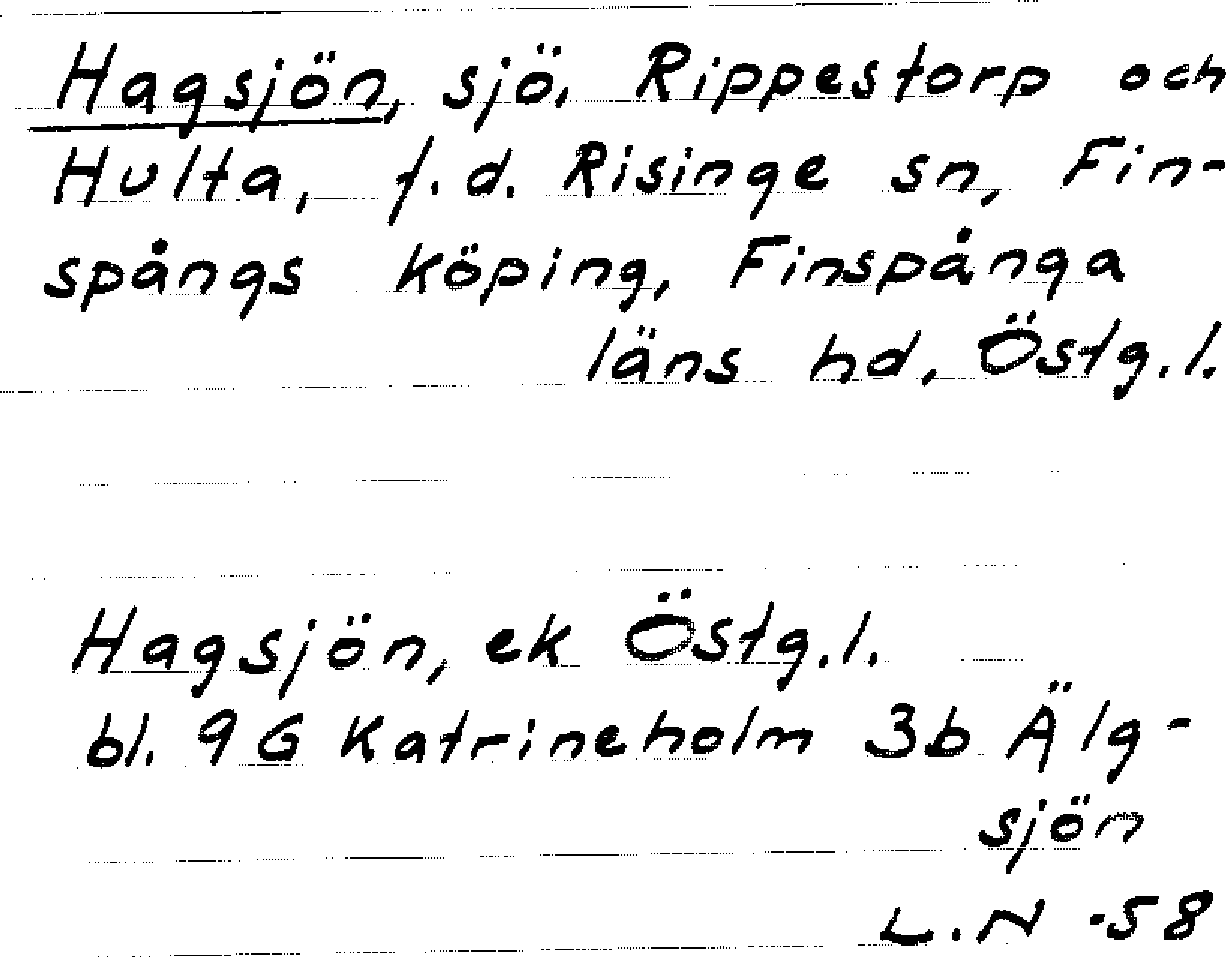 Hagsjön, sjö, Rippestorp och
Hulta, f.d. Risinge sn, Fin-
spångs köping, Finspånga
läns hd, Östg.l.
Hagsjön, ek Östg.l.
bl. 9G Katrineholm 3b Älg-
sjön
L.N -58